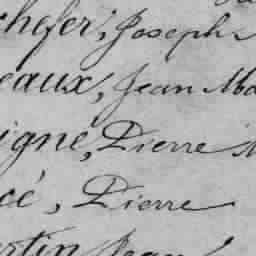 chefer, Joseph
eaux, Jean Ma
igné, Pierre
cé, Pierre
ertin Jean